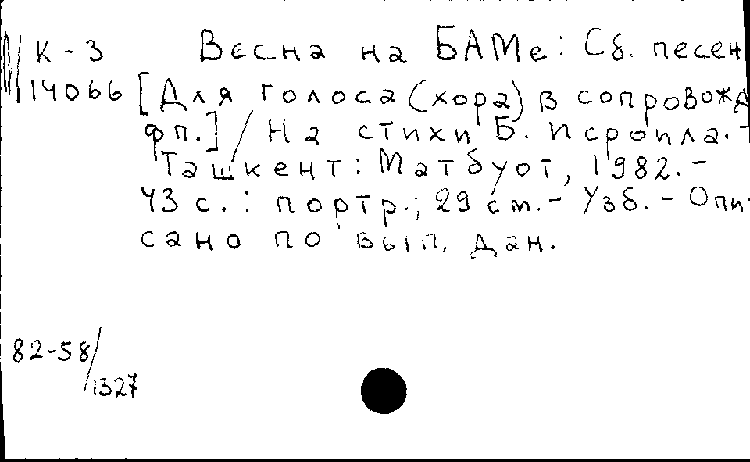 К-3 Весна на БАМе: Сб. песен
14066 [Для голоса (хора) в сопровожд
фп.] / На стихи Б. Исроила. -
Ташкент: Матбуот, 1982. -
43 с.: портр.; 29 см. - Узб. - Опи-
сано по вып. дан.
82-58/
1327